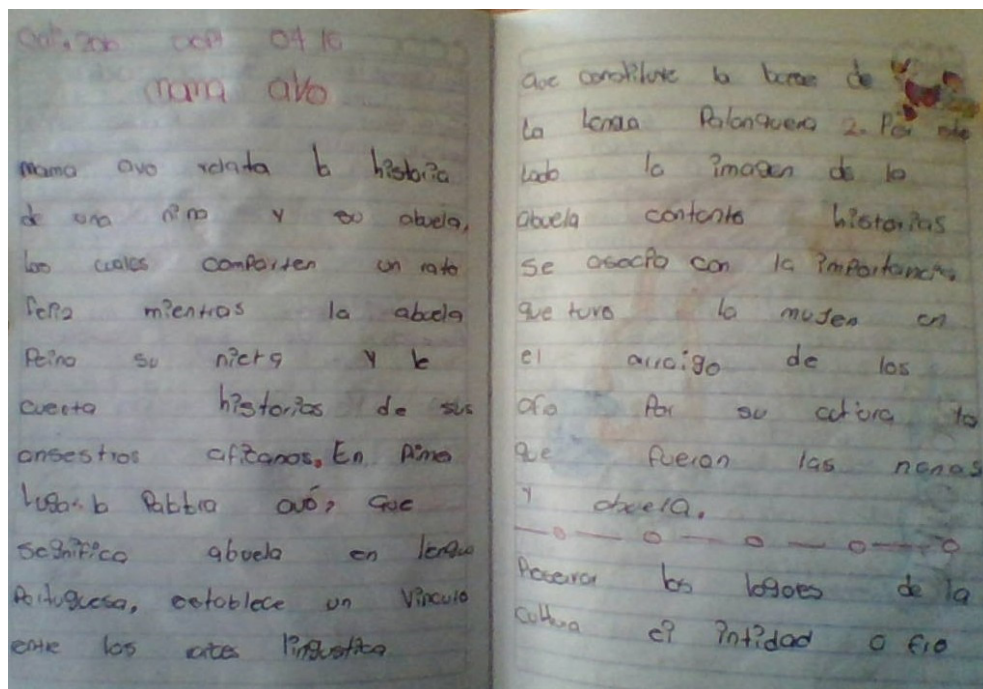 oct 04 16
mama avo
mama avo relata la historia
de una nino y su abuela,
los cuales comparten un rato
feliz mientras la abuela
Peina su nieta y le
cuecta historias de sus
ansestros aficanos. En Prime
lugar la Palabra avó, que
segnifica abuela en lengua
Portuguesa, establece un vinculo
entre las lingustica
que constitute la barse de
la lengua Palanquera 2. Por
lado la imagen de la
abuela contanto historias
se asocia con la importancia
que tuvo la mujen en
el arraigo de los
afro Por su cultura lo
que fueron las nanas
y abuela.
los logoes de la
cultura intidad a fro